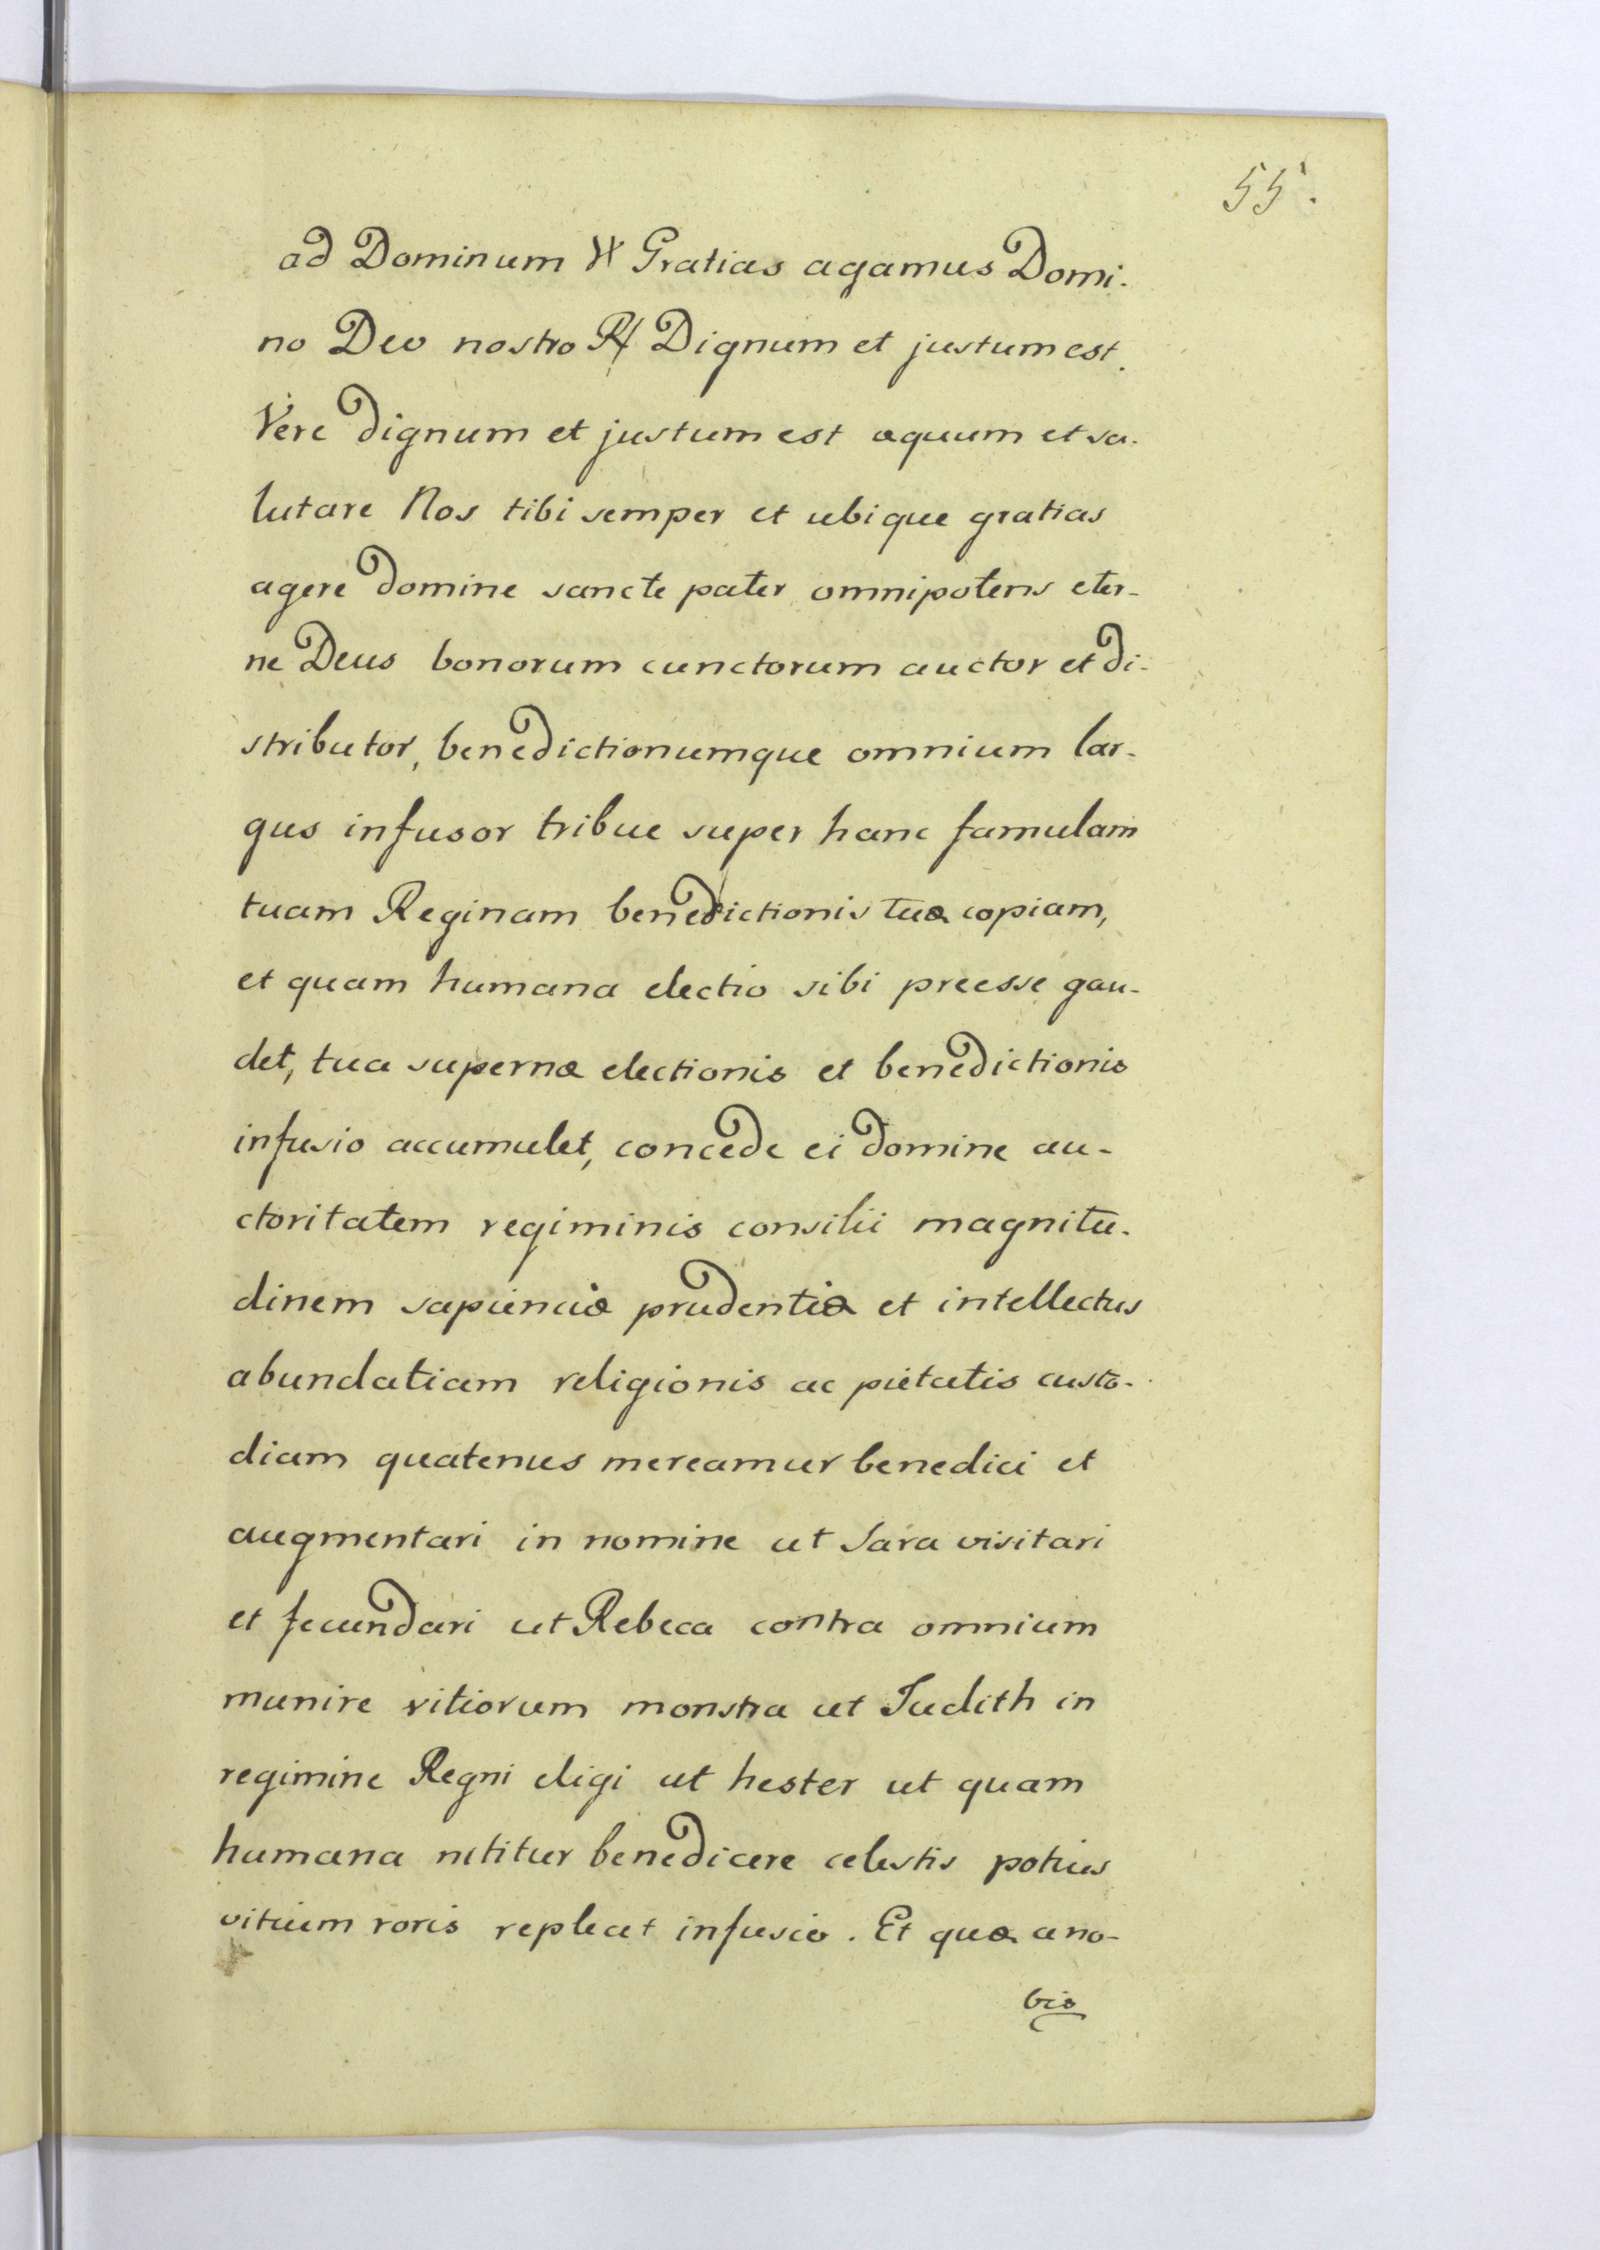 55.
ad Dominum ℣ Gratias agamus Domi-
no Deo nostro ℟ Dignum et justum est.
Vere dignum et justum est aquum et sa-
lutare Nos tibi semper et ubique gratias
agere domine sancte pater omnipotens eter-
ne Deus bonorum cunctorum auctor et di-
stributor, benedictionumque omnium lar-
gus infusor tribue super hanc famulam
tuam Reginam benedictionis tuæ copiam,
et quam humana electio sibi preesse gau-
det, tua supernæ electionis et benedictionis
infusio accumulet, concede ei domine au-
ctoritatem regiminis consilii magnitu-
dinem sapienciæ prudentiæ et intellectus
abundatiam religionis ac pietatis custo-
diam quatenus mereamur benedici et
augmentari in nomine ut Sara visitari
et fecundari ut Rebeca contra omnium
munire vitiorum monstra ut Judith in
regimine Regni eligi ut hester ut quam
humana nititur benedicere celestis potius
vitium roris repleat infusio. Et quæ a no-
bis